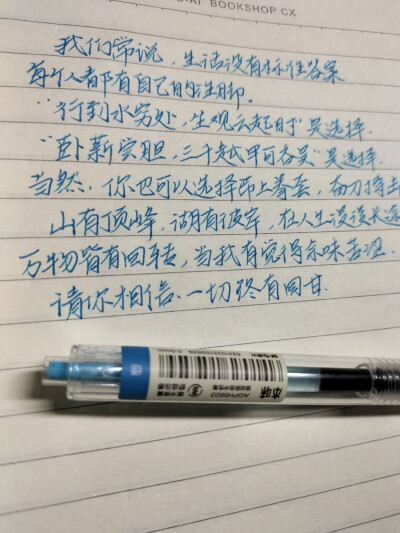 AI BOOKSHOP CX
我们常说，生活没有标准答案
每个人都有自己的注脚.
"行到水穷处，坐观云起时"是选择.
"卧薪尝胆，三千越甲可吞吴"是选择.
当然，你也可以选择
山有顶峰，湖有彼岸，在人生漫漫长途
万物皆有回转，当我有觉得余味苦涩.
请你相信、一切终有回甘.
本味
AGPH5603